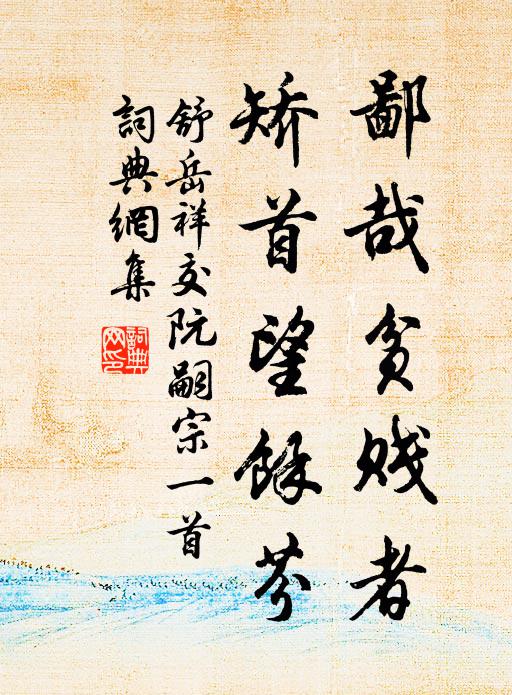 鄙哉贫贱者
矫首望馀芬
舒岳祥交阮嗣宗一首
詞典網集
詞典網印